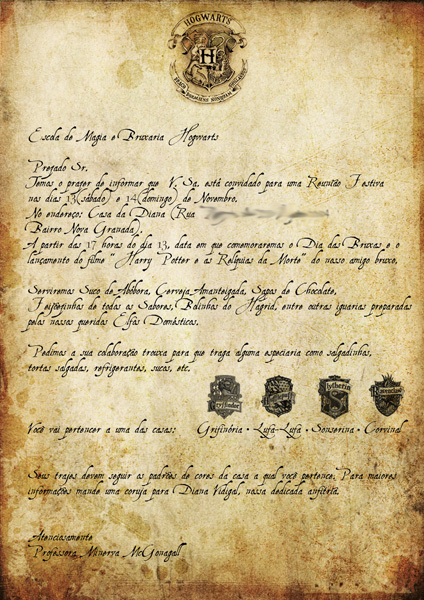 HOGWARTS
Escola de Magia e Bruxaria Hogwarts
Prezado Sr.
Temos o prazer de informar que V. Sa. está convidado para uma Reunião Festiva
nos dias 13(sábado) e 14(domingo) de Novembro.
No endereço: Casa da Diana (Rua
Bairro Nova Granada).
A partir das 17 horas do dia 13, data em que comemoraremos o Dia das Bruxas e o
lançamento do filme "Harry Potter e as Relíquias da Morte" do nosso amigo bruxo.
Serviremos Suco de Abóbora, Cerveja Amanteigada, Sapos de Chocolate,
Feijõezinhos de todos os Sabores, Bolinhos do Hagrid, entre outras iguarias preparadas
pelos nossos queridos Elfos Domésticos.
Pedimos a sua colaboração trouxa para que traga alguma especiaria como salgadinhos,
tortas salgadas, refrigerantes, sucos, etc.
Slytherin Ravenclaw
Você vai pertencer a uma das casas: Grifinória • Lufa-Lufa • Sonserina • Corvinal
Seus trajes devem seguir os padrões de cores da casa a qual você pertence. Para maiores
informações mande uma coruja para Diana Vidigal, nossa dedicada anfitriã.
Atenciosamente
Professora Minerva McGonagall